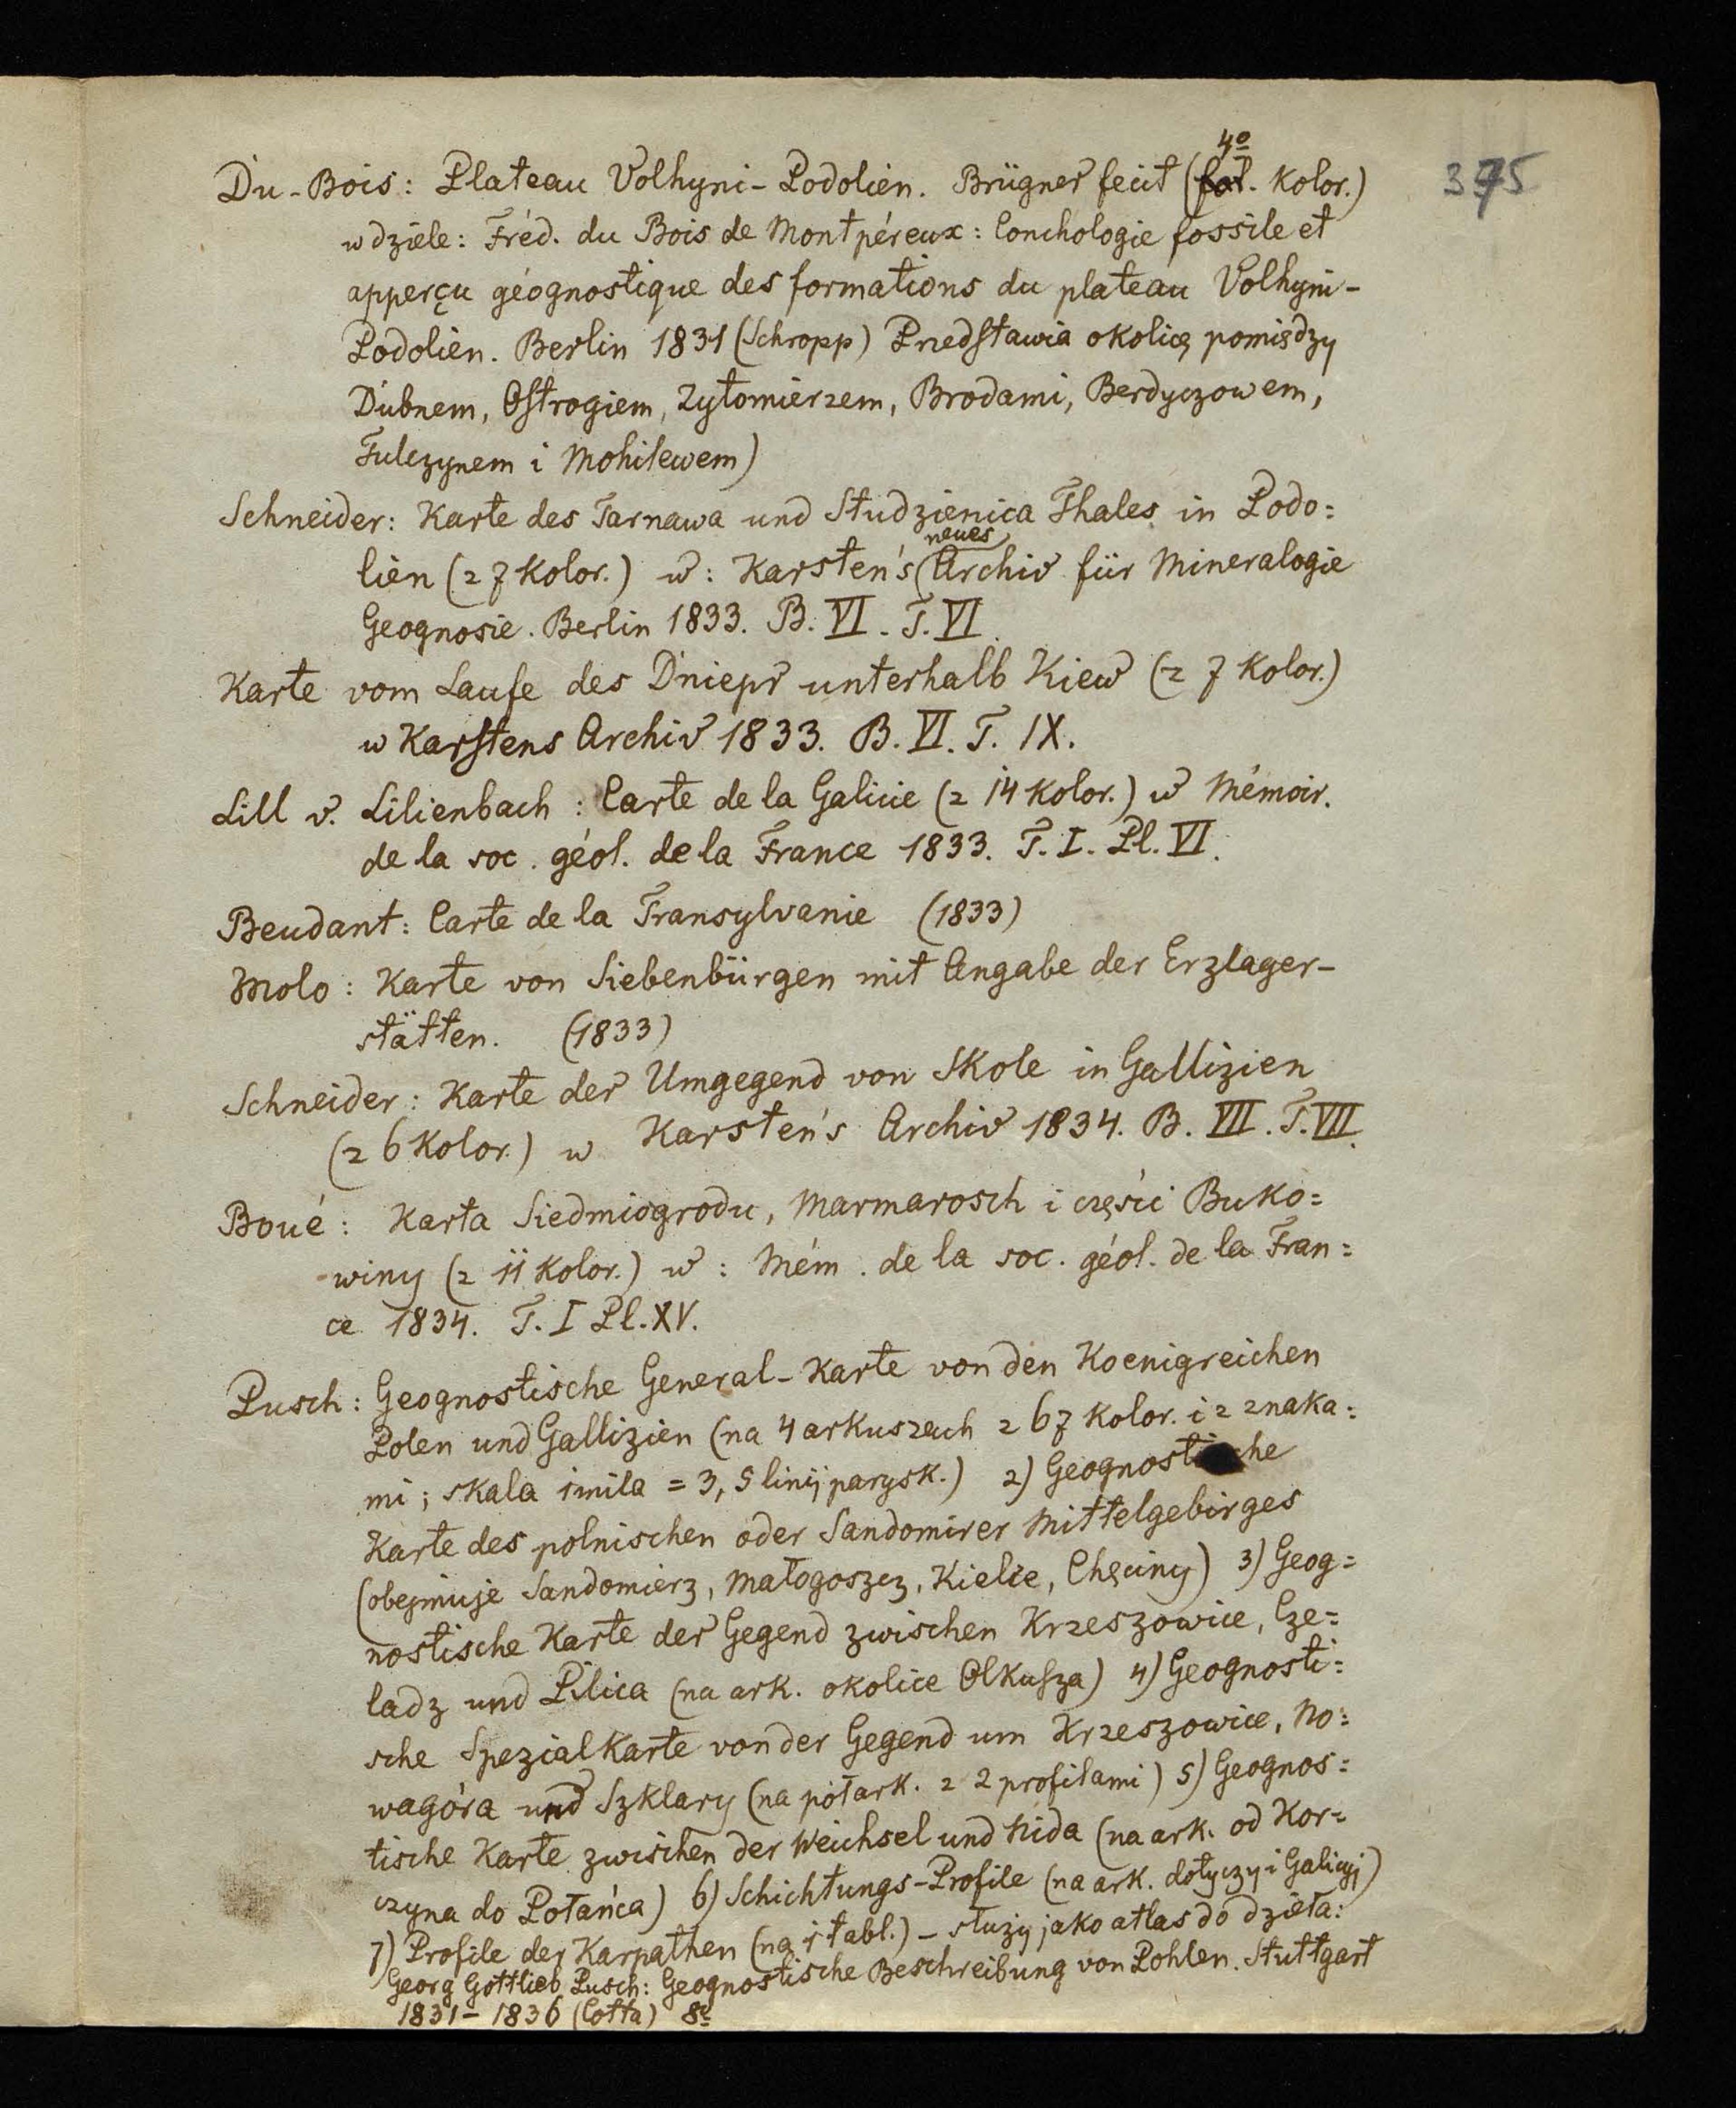 375
4º
Du-Bois: Plateau Volhyni-Podolien. Brügner fecit (fol. Kolor.)
w dziele: Fréd. du Bois de Montpéreux: Conchologie fossile et
apperçu géognostique des formations du plateau Volhyni-
Podolien. Berlin 1831 (Schropp) Przedstawia okolicę pomiędzy
Dubnem, Ostrogiem, Żytomierzem, Brodami, Berdyczowem,
Tulczynem i Mohilewem)
Schneider: Karte des Tarnawa und Studzienica Thales in Podo=
lien (z 7 Kolor.) w: Karsten's neues Archiv für Mineralogie
Geognosie. Berlin 1833. B. VI. T. VI.
Karte vom Laufe des Dniepr unterhalb Kiew (z 7 Kolor.)
w Karstens Archiv 1833. B. VI. T. IX.
Lill v. Lilienbach: Carte de la Galicie (z 14 Kolor.) w Mémoir.
de la soc. géol. de la France 1833. T. I. Pl. VI.
Beudant: Carte de la Transylvanie (1833)
Molo: Karte von Siebenbürgen mit Angabe der Erzlager-
stätten. (1833)
Schneider: Karte der Umgegend von Skole in Gallizien
(z 6 Kolor.) w Karsten's Archiv 1834. B. VII. T. VII.
Boué: Karta Siedmiogrodu, Marmarosch i części Buko=
winy (z 11 Kolor.) w: Mém. de la soc. géol. de la Fran=
ce 1834. T. I Pl. XV.
Pusch: Geognostische General-Karte von den Koenigreichen
Polen und Gallizien (na 4 arkuszach z 67 Kolor. i z znaka=
mi; skala 1 mila = 3,5 linij parysk.) 2) Geognostische
Karte des polnischen oder Sandomirer Mittelgebirges
(obejmuje Sandomierz, Małogoszcz, Kielce, Chęciny) 3) Geog=
nostische Karte der Gegend zwischen Krzeszowice, Cze=
ladz und Pilica (na ark. okolice Olkusza) 4) Geognosti=
sche Spezialkarte von der Gegend um Krzeszowice, No=
wagóra und Szklary (na półark. z 2 profilami) 5) Geognos=
tische Karte zwischen der Weichsel und Nida (na ark. od Kor=
czyna do Połańca) 6) Schichtungs-Profile (na ark. dotyczy i Galicyj)
7) Profile der Karpathen (na 1 tabl.) - służy jako atlas do dzieła:
Georg Gottlieb Pusch: Geognostische Beschreibung von Pohlen. Stuttgart
1831-1836 (Cotta) 8º